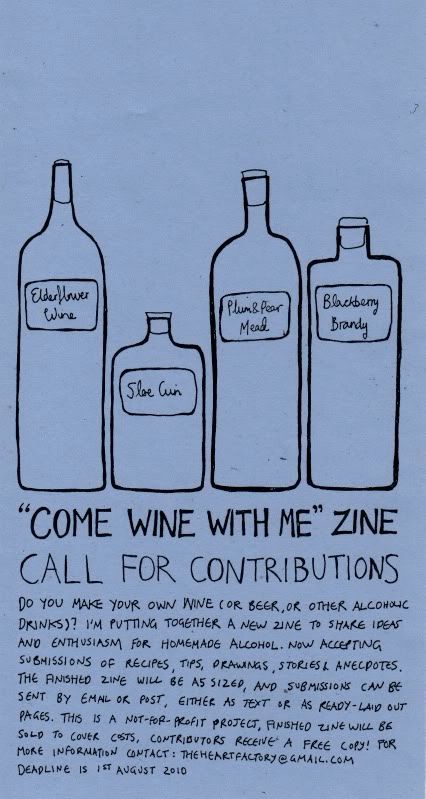 Elderflower
Wine
Sloe Gin
Plum & Pear
Mead
Blackberry
Brandy
"COME WINE WITH ME" ZINE
CALL FOR CONTRIBUTIONS
DO YOU MAKE YOUR OWN WINE (OR BEER, OR OTHER ALCOHOLIC
DRINKS)? I'M PUTTING TOGETHER A NEW ZINE TO SHARE IDEAS
AND ENTHUSIASM FOR HOMEMADE ALCOHOL. NOW ACCEPTING
SUBMISSIONS OF RECIPES, TIPS, DRAWINGS, STORIES & ANECDOTES.
THE FINISHED ZINE WILL BE A5 SIZED, AND SUBMISSIONS CAN BE
SENT BY EMAIL OR POST, EITHER AS TEXT OR AS READY-LAID OUT
PAGES. THIS IS A NOT-FOR-PROFIT PROJECT, FINISHED ZINE WILL BE
SOLD TO COVER COSTS, CONTRIBUTORS RECEIVE A FREE COPY! FOR
MORE INFORMATION CONTACT: THEHEARTFACTORY@GMAIL.COM
DEADLINE IS 1ST AUGUST 2010